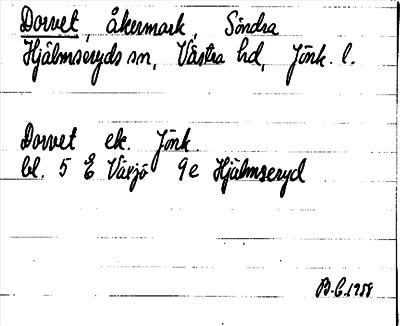 Dorvet, åkermark, Söndra
Hjälmseryds sn, Västra hd, Jönk. l.
Dorvet ek. Jönk.
bl. 5 E Växjö 9e Hjälmseryd
B.C. 1958